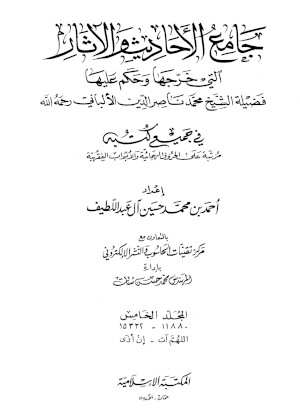 جامع الأحاديث والآثار
التي خرجها وحكم عليها
فضيلة الشيخ محمد ناصر الدين الألباني رحمه الله
في جميع كتبه
مرتبة على الحروف الهجائية والأبواب الفقهية
إعداد
أحمد بن محمد حسين آل عبد اللطيف
بالتعاون مع
مركز تقنيات الحاسوب والنشر الإلكتروني
بإدارة
المهندس محمد حسن
المجلد الخامس
١١٨٨٠ - ١٥٣٢٢
اللهم آت - إن أذى
المكتبة الإسلامية
عمان - الأردن